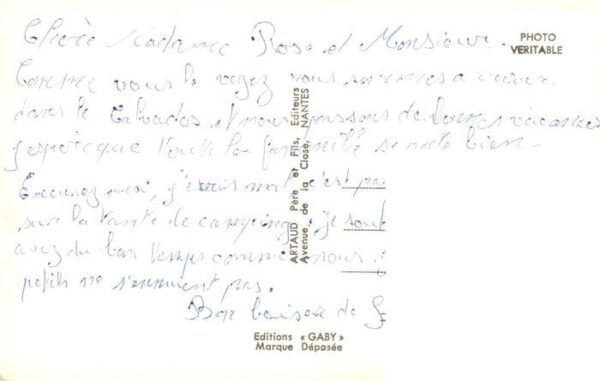 Chère Madame Rose et Monsieur.
Comme vous le voyez nous sommes a
dans le Calvados. et nous passons de bonnes vacances
j'espère que toute la famille se porte bien.
Excusez moi, j'écris mal c'est pas
sur la tente de camping. je souh
avez du bon temps comme nous.
petits ne s'ennuient pas.
Bon baiser de
PHOTO
VERITABLE
ARTAUD Père et Fils, Editeurs
Avenue de la Close, NANTES
Editions « GABY »
Marque Déposée